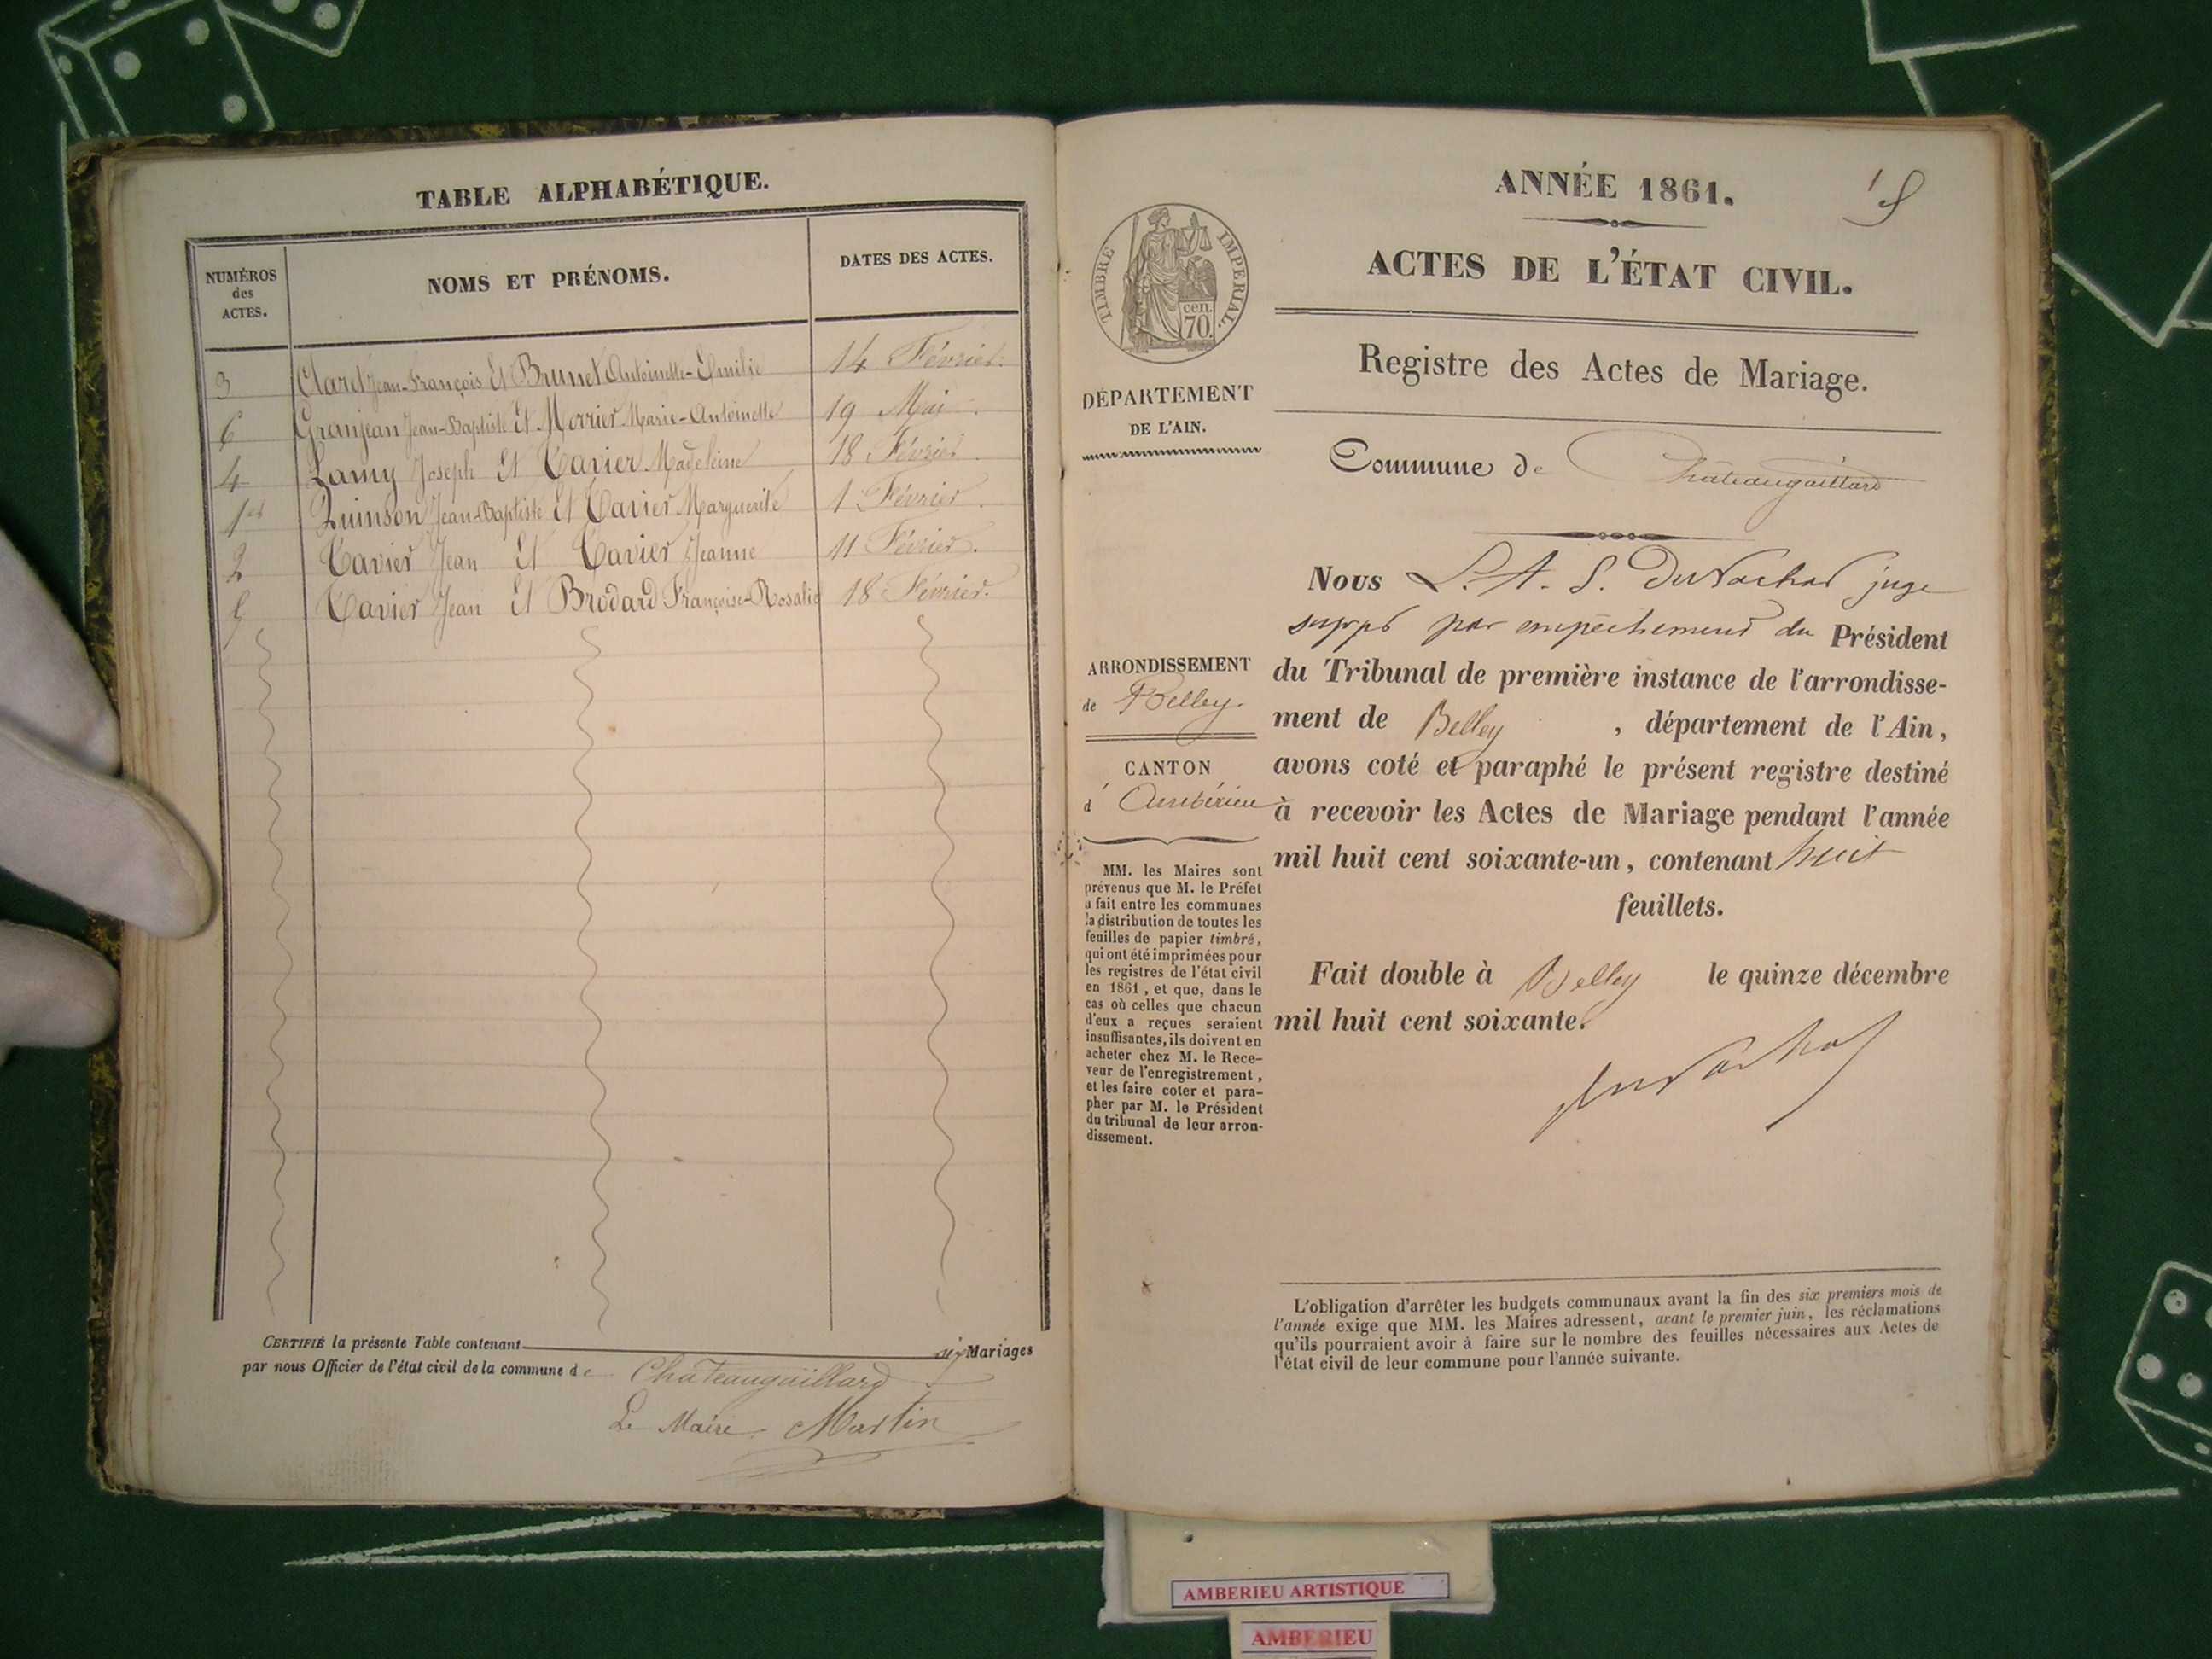 TABLE ALPHABÉTIQUE.
NUMÉROS
des
ACTES.
NOMS ET PRÉNOMS.
DATES DES ACTES.
3 Claret Jean-François Et Brunet Antoinette-Emilie 14 Février.
6 Granjean Jean-Baptiste Et Morrier Marie-Antoinette 19 Mai.
4 Lamy Joseph Et Tavier Madeleine 18 Février.
1er Quinson Jean-Baptiste Et Tavier Marguerite 1 Février.
2 Tavier Jean Et Tavier Jeanne 11 Février.
5 Tavier Jean Et Brodard Françoise-Rosalie 18 Février.
CERTIFIÉ la présente Table contenant six Mariages
par nous Officier de l'état civil de la commune de Chateaugaillard
Le Maire Martin
ANNÉE 1861.
ACTES DE L'ÉTAT CIVIL.
Registre des Actes de Mariage.
Commune de Châteaugaillard
TIMBRE IMPERIAL.
cen.
70
DÉPARTEMENT
DE L'AIN.
ARRONDISSEMENT
de Belley.
CANTON
d' Ambérieu
MM. les Maires sont
prévenus que M. le Préfet
a fait entre les communes
la distribution de toutes les
feuilles de papier timbré,
qui ont été imprimées pour
les registres de l'état civil
en 1861, et que, dans le
cas où celles que chacun
d'eux a reçues seraient
insuffisantes, ils doivent en
acheter chez M. le Rece-
veur de l'enregistrement,
et les faire coter et para-
pher par M. le Président
du tribunal de leur arron-
dissement.
Nous L. A. S. juge
par empêchement du Président
du Tribunal de première instance de l'arrondisse-
ment de Belley, département de l'Ain,
avons coté et paraphé le présent registre destiné
à recevoir les Actes de Mariage pendant l'année
mil huit cent soixante-un, contenant huit
feuillets.
Fait double à Belley le quinze décembre
mil huit cent soixante.
L'obligation d'arrêter les budgets communaux avant la fin des six premiers mois de
l'année exige que MM. les Maires adressent, avant le premier juin, les réclamations
qu'ils pourraient avoir à faire sur le nombre des feuilles nécessaires aux Actes de
l'état civil de leur commune pour l'année suivante.
AMBERIEU ARTISTIQUE
AMBERIEU